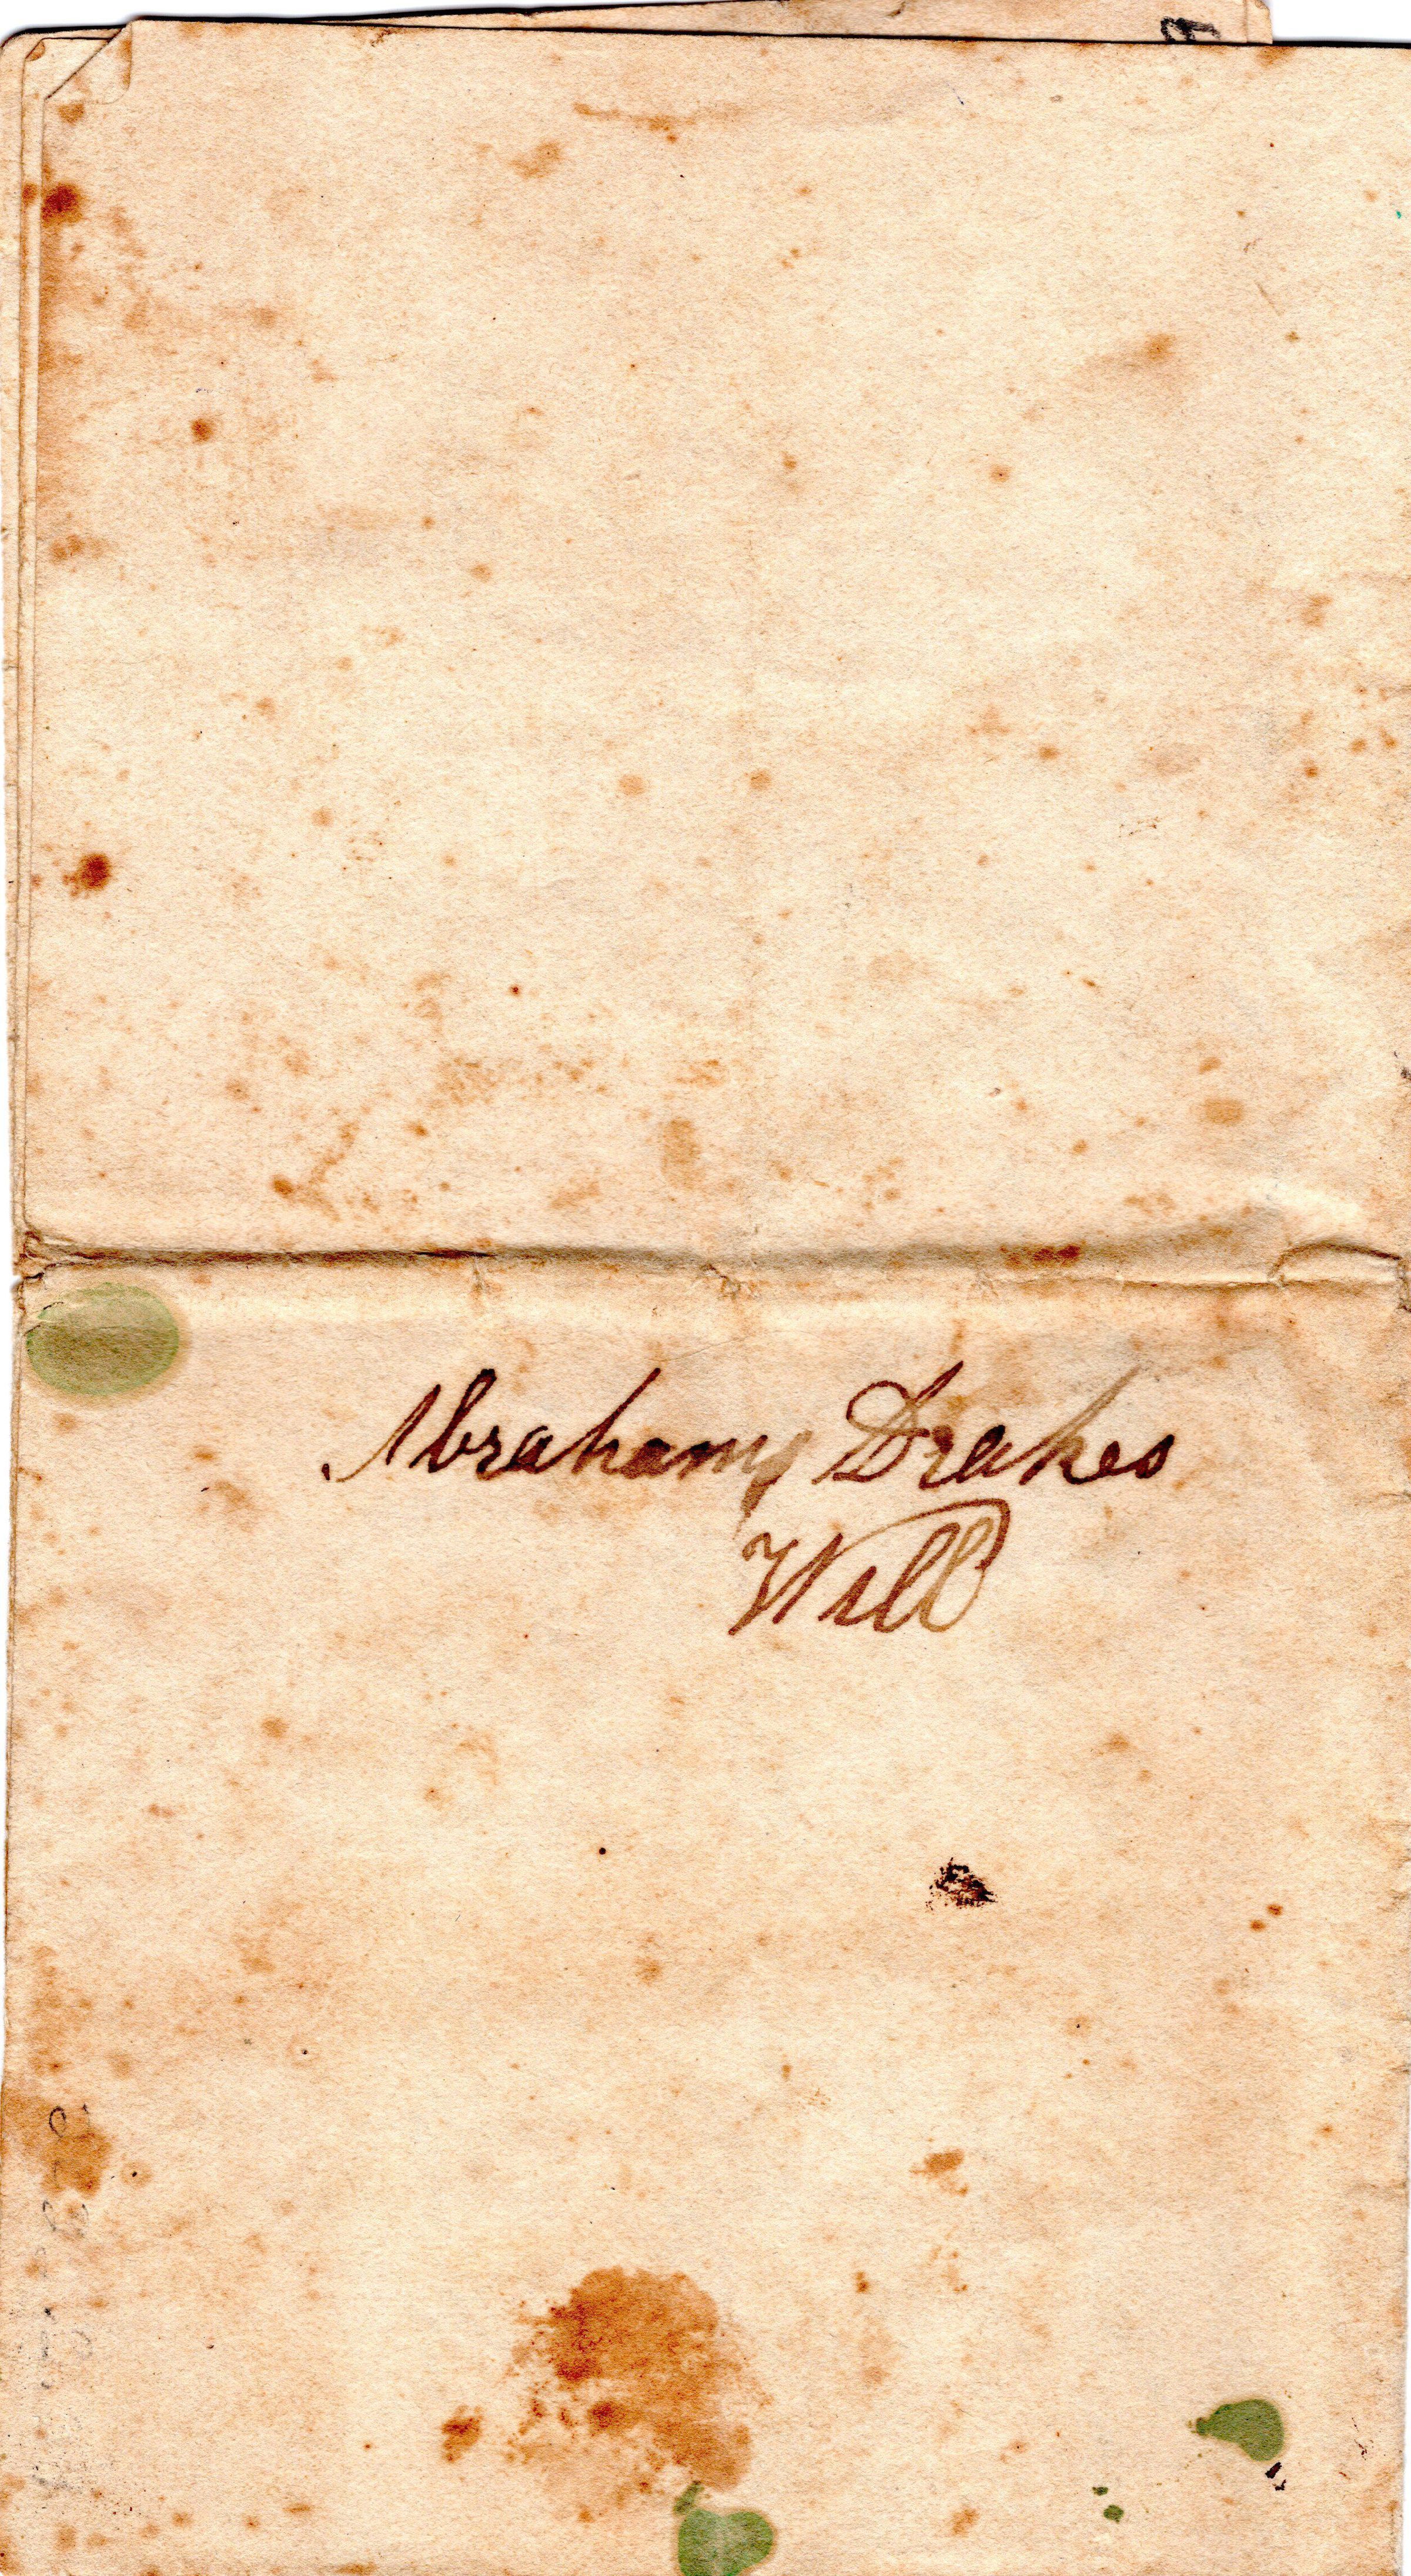 Abrahams Drakes
Will